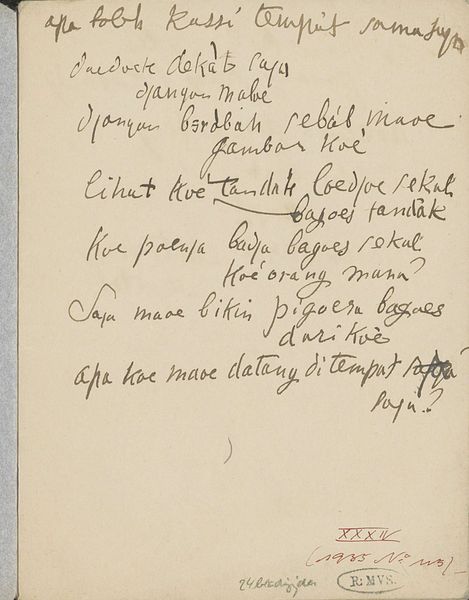 apa boleh kassi tempat sama saya
doedoek dekat saja
djangan maloe
djangan berobah sebab maoe
gambar koé
lihat koé tandak loedjoe sekali
bagoes tandak
Koe poenja badja bagoes sekali
Koé orang mana?
Saja maoe bikin pigoera bagoes
dari koé
apa koe maoe datang di tempat
saja?
XXXIV
(1935 No 113)
R.MVS.